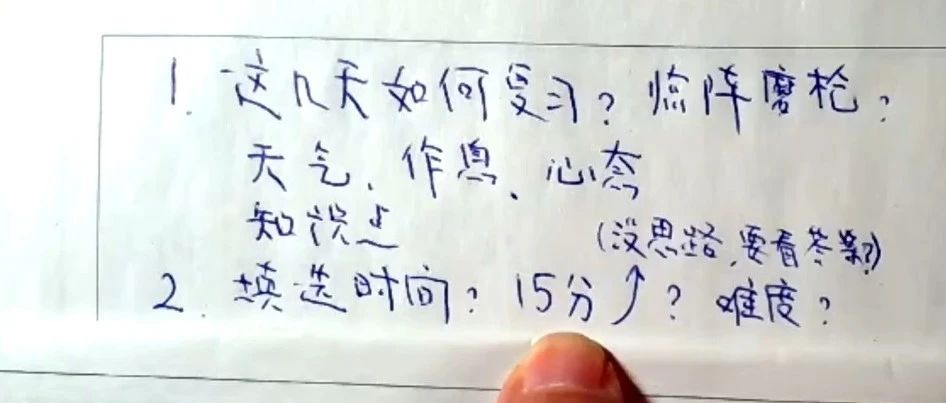 1. 这几天如何复习？临阵磨枪？
天气、作息、心态
知识点
(没思路,要看答案?)
2. 填选时间？15分↑？难度？